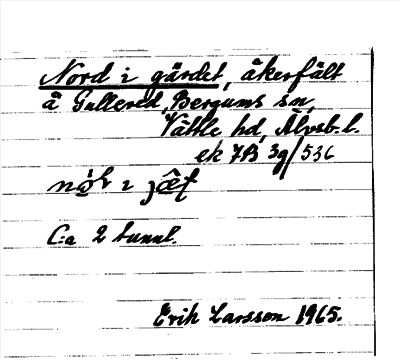 Nord i gärdet, åkerfält
å Gullered, Bergums sn,
Vättle hd, Älvsb. l.
ek 7B 3g/536
C:a 2 tunnl.
Erik Larsson 1965.